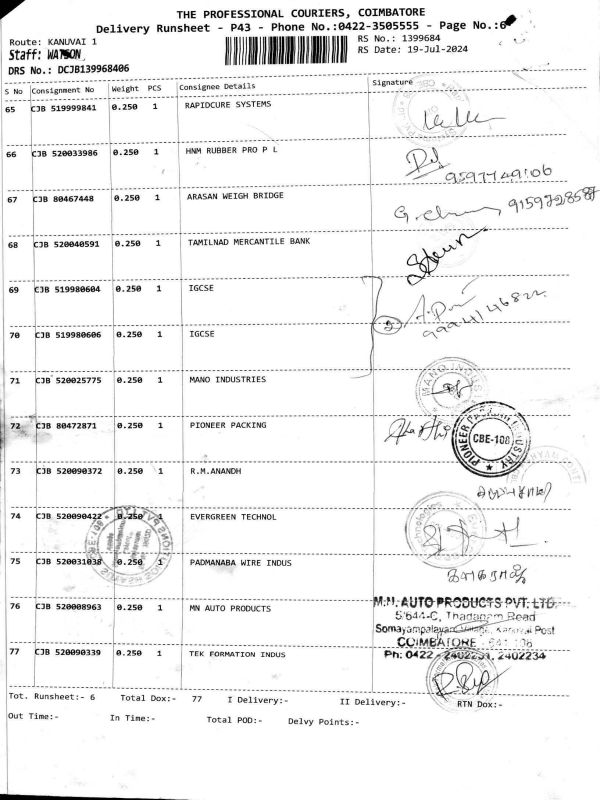 THE PROFESSIONAL COURIERS, COIMBATORE
Delivery Runsheet - P43 - Phone No.:0422-3505555 - Page No.:6
Route: KANUVAI 1
RS No.: 1399684
Staff: WATSON
RS Date: 19-Jul-2024
DRS No.: DCJB139968406
S No Consignment No Weight PCS Consignee Details Signature
65 CJB 519999841 0.250 1 RAPIDCURE SYSTEMS
66 CJB 520033986 0.250 1 HNM RUBBER PRO P L
9597749106
67 CJB 80467448 0.250 1 ARASAN WEIGH BRIDGE
9159728587
68 CJB 520040591 0.250 1 TAMILNAD MERCANTILE BANK
69 CJB 519980604 0.250 1 IGCSE
2
9994146822
70 CJB 519980606 0.250 1 IGCSE
71 CJB 520025775 0.250 1 MANO INDUSTRIES
MANO INDUS
72 CJB 80472871 0.250 1 PIONEER PACKING
PIONEER PACKING INDUSTRY
CBE-108
73 CJB 520090372 0.250 1 R.M.ANANDH
74 CJB 520090422 0.250 1 EVERGREEN TECHNOL
75 CJB 520031038 0.250 1 PADMANABA WIRE INDUS
கனகராஜ்
76 CJB 520008963 0.250 1 MN AUTO PRODUCTS
M.N. AUTO PRODUCTS PVT. LTD.
5/644-C, Thadagam Road
Somayampalayam Village, Kanuvai Post
COIMBATORE - 641 108
Ph: 0422 - 2402231, 2402234
77 CJB 520090339 0.250 1 TEK FORMATION INDUS
Tot. Runsheet:- 6 Total Dox:- 77 I Delivery:- II Delivery:- RTN Dox:-
Out Time:- In Time:- Total POD:- Delvy Points:-